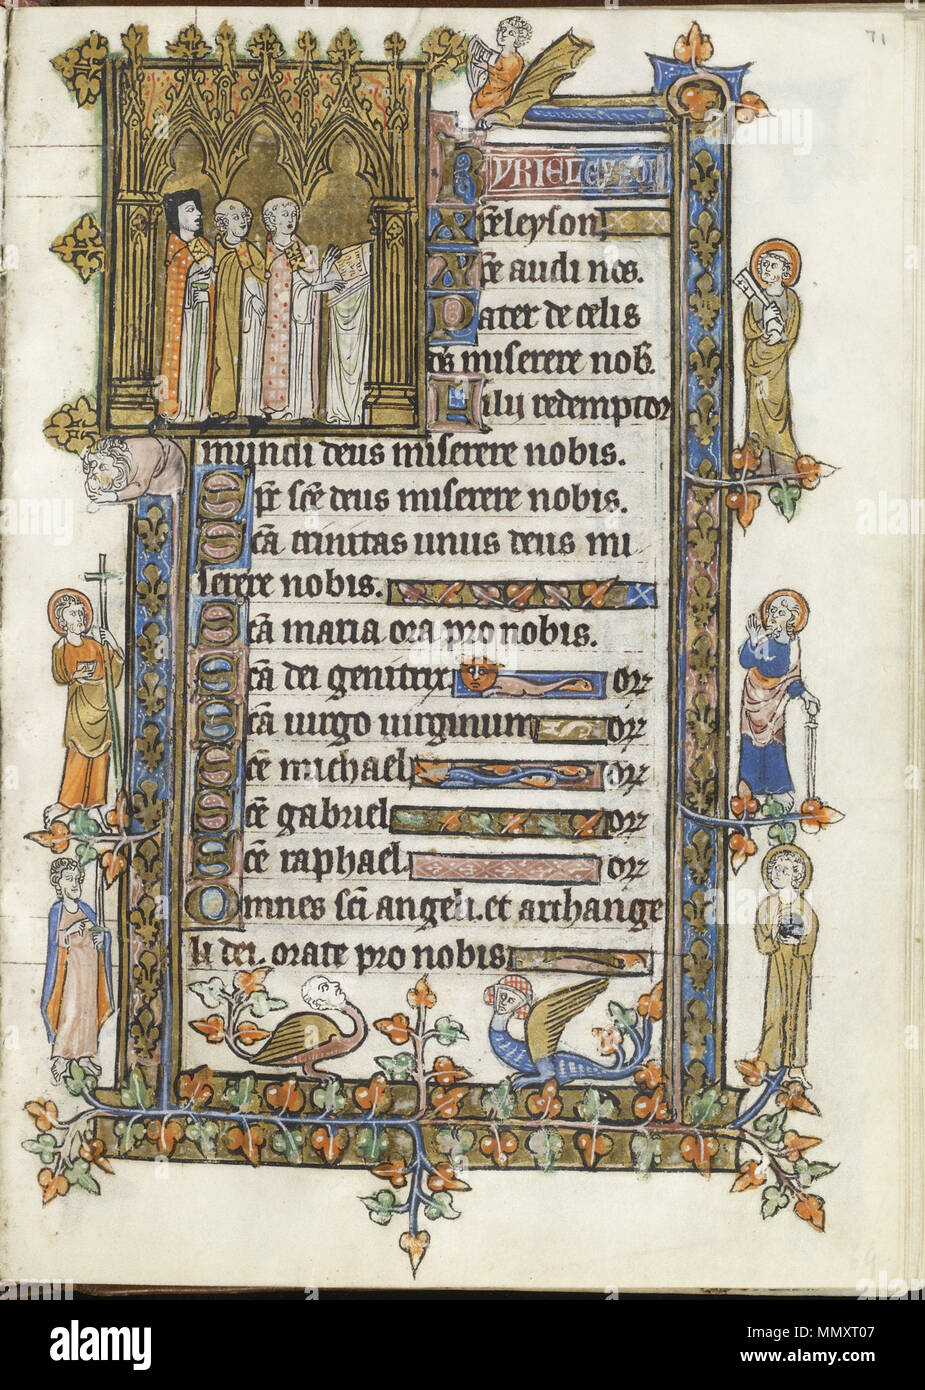 71
KYRIEL eyson
xp̄eleyson.
xp̄e audi nos.
Pater de celis
d̄s miserere nob̄.
Filii redemptor
mundi deus miserere nobis.
Sp̄c sc̄e deus miserere nobis.
Sc̄a trinitas unus deus mi
serere nobis.
Sc̄a maria ora pro nobis.
Sc̄a dei genitrix or̄
Sc̄a uirgo uirginum or̄
Sc̄e michael or̄
Sc̄e gabriel or̄
Sc̄e raphael. or̄
Omnes sc̄i angeli. et archange
li dei. orate pro nobis
alamy
alamy
Image ID: MMXT07
www.alamy.com